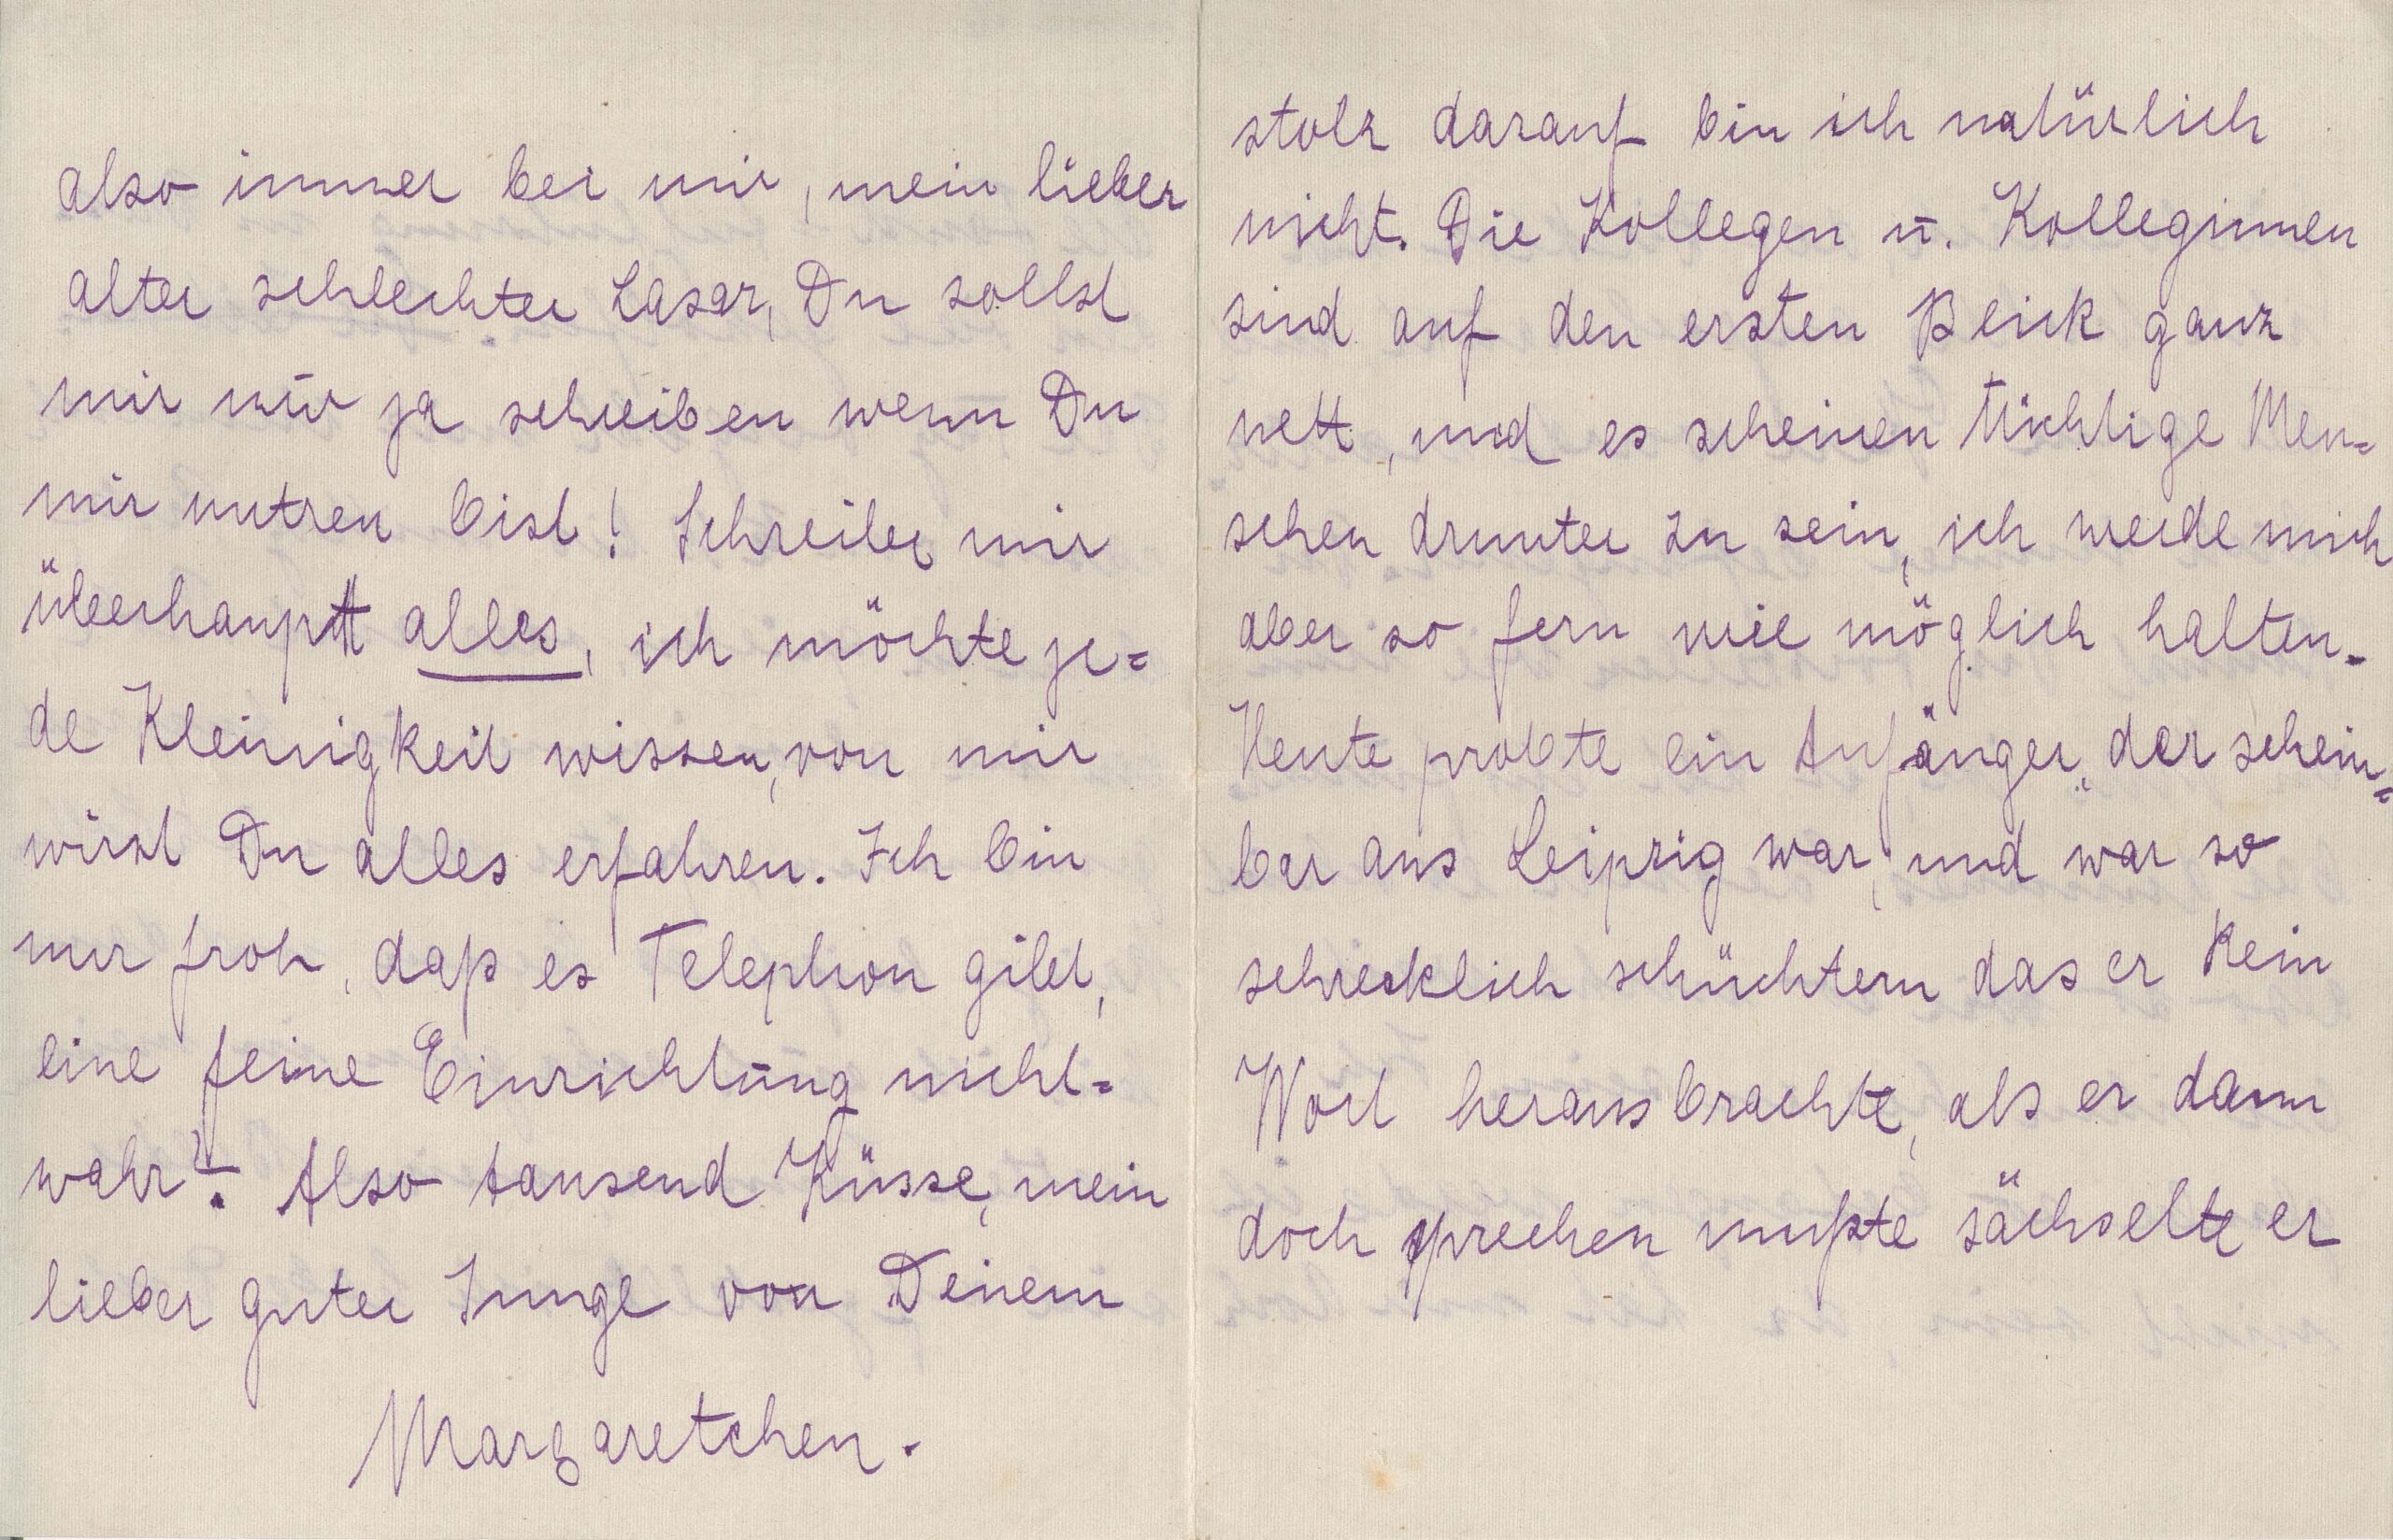 also immer bei mir, mein lieber
alter schlechter Lasar, Du sollst
mir nur ja schreiben wenn Du
mir untreu bist! Schreibe mir
überhaupt alles, ich möchte je=
de Kleinigkeit wissen, von mir
wirst Du alles erfahren. Ich bin
nur froh, daß es Telephon gibt,
eine feine Einrichtung nicht=
wahr? Also tausend Küsse, mein
lieber guter Junge von Deinem
Margaretchen.
stolz darauf bin ich natürlich
nicht. Die Kollegen u. Kolleginnen
sind auf den ersten Blick ganz
nett, und es scheinen tüchtige Men=
schen drunter zu sein, ich werde mich
aber so fern wie möglich halten.
Heute probte ein Anfänger, der schein=
bar aus Leipzig war, und war so
schrecklich schüchtern das er kein
Wort herausbrachte, als er dann
doch sprechen mußte sächselte er